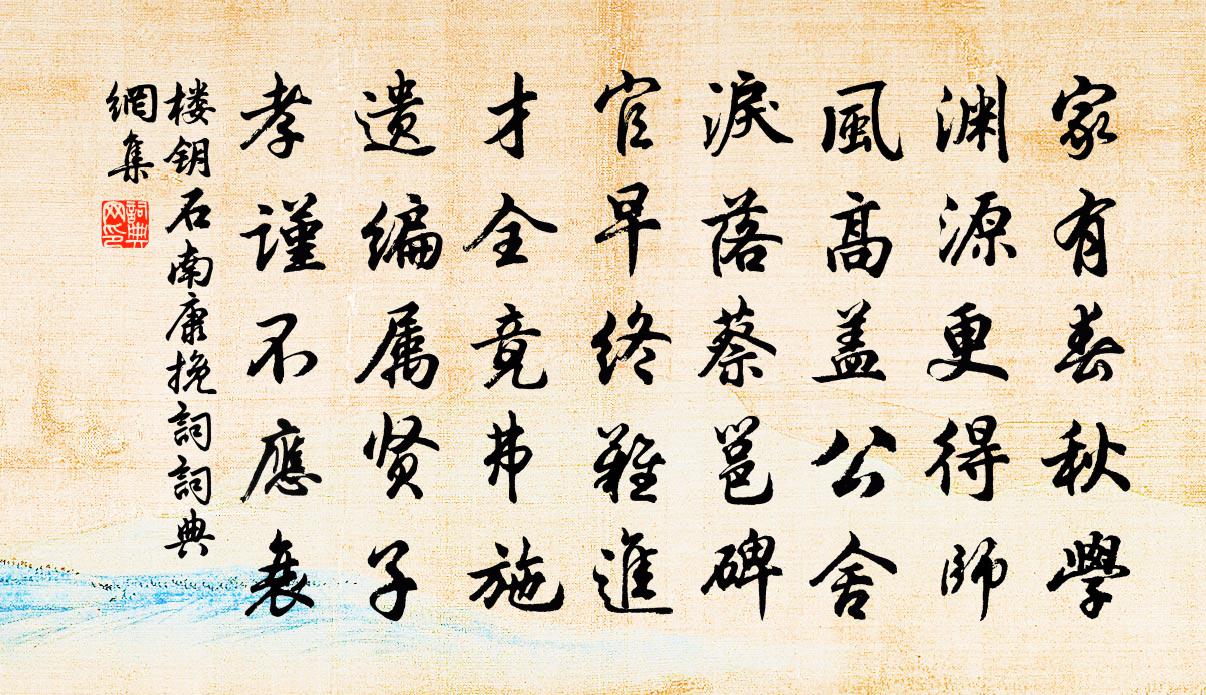 家有春秋學
渊源更得師
風高盖公舍
淚落蔡邕碑
官早终難進
才全竟弗施
遗编属贤子
孝謹不應衰
楼钥石南康挽詞詞典
網集
詞典
网印